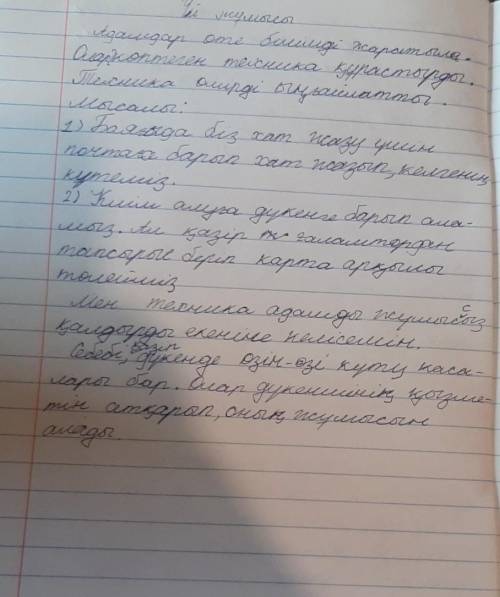 Үй жұмысы
Адамдар өте білімді жаратылы.
Олар көптеген техника құрастырды.
Техника өмірді ыңғайлатты.
Мысалы:
1) Баяғыда біз хат жазу үшін
почтаға барып хат жазып, келгенің
күтеміз.
2) Киім алуға дүкенге барып ала-
мыз. Ал қазір ғаламтордан
тапсырыс беріп карта арқылы
төлейміз
Мен техника адамды жұмыссыз
қалдырды екеніне келісемін.
Себебі, қазір дүкенде өзін-өзі күтіц каса-
лары бар. Олар дүкеншінің қызме-
тін атқарып, оның жұмысын
алады.